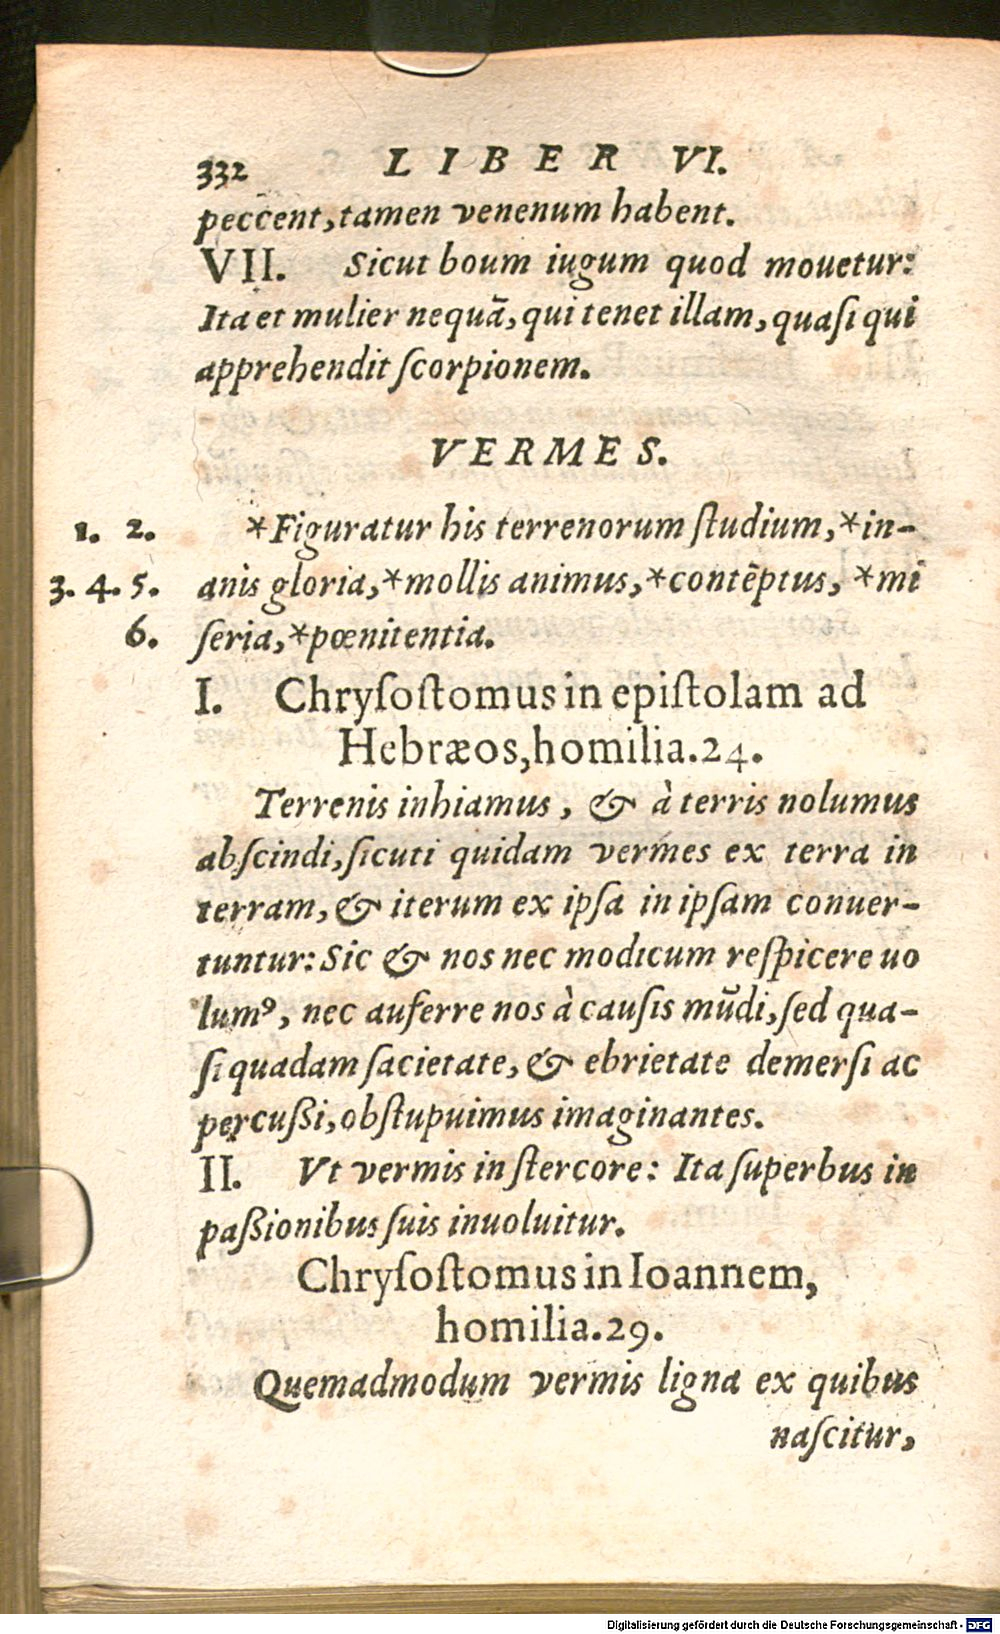 332 LIBER VI.
peccent, tamen venenum habent.
VII. Sicut boum iugum quod mouetur:
Ita et mulier nequā, qui tenet illam, quaſi qui
apprehendit ſcorpionem.
VERMES.
1. 2. *Figuratur his terrenorum ſtudium, *in-
3. 4. 5. anis gloria, *mollis animus, *contēptus, *mi
6. ſeria, *pœnitentia.
I. Chryſoſtomus in epiſtolam ad
Hebræos, homilia. 24.
Terrenis inhiamus, & à terris nolumus
abſcindi, ſicuti quidam vermes ex terra in
terram, & iterum ex ipſa in ipſam conuer-
tuntur: Sic & nos nec modicum reſpicere uo
lumꝰ, nec auferre nos à cauſis mūdi, ſed qua-
ſi quadam ſacietate, & ebrietate demerſi ac
percußi, obſtupuimus imaginantes.
II. Vt vermis in ſtercore: Ita ſuperbus in
paßionibus ſuis inuoluitur.
Chryſoſtomus in Ioannem,
homilia. 29.
Quemadmodum vermis ligna ex quibus
naſcitur,
Digitalisierung gefördert durch die Deutsche Forschungsgemeinschaft - DFG